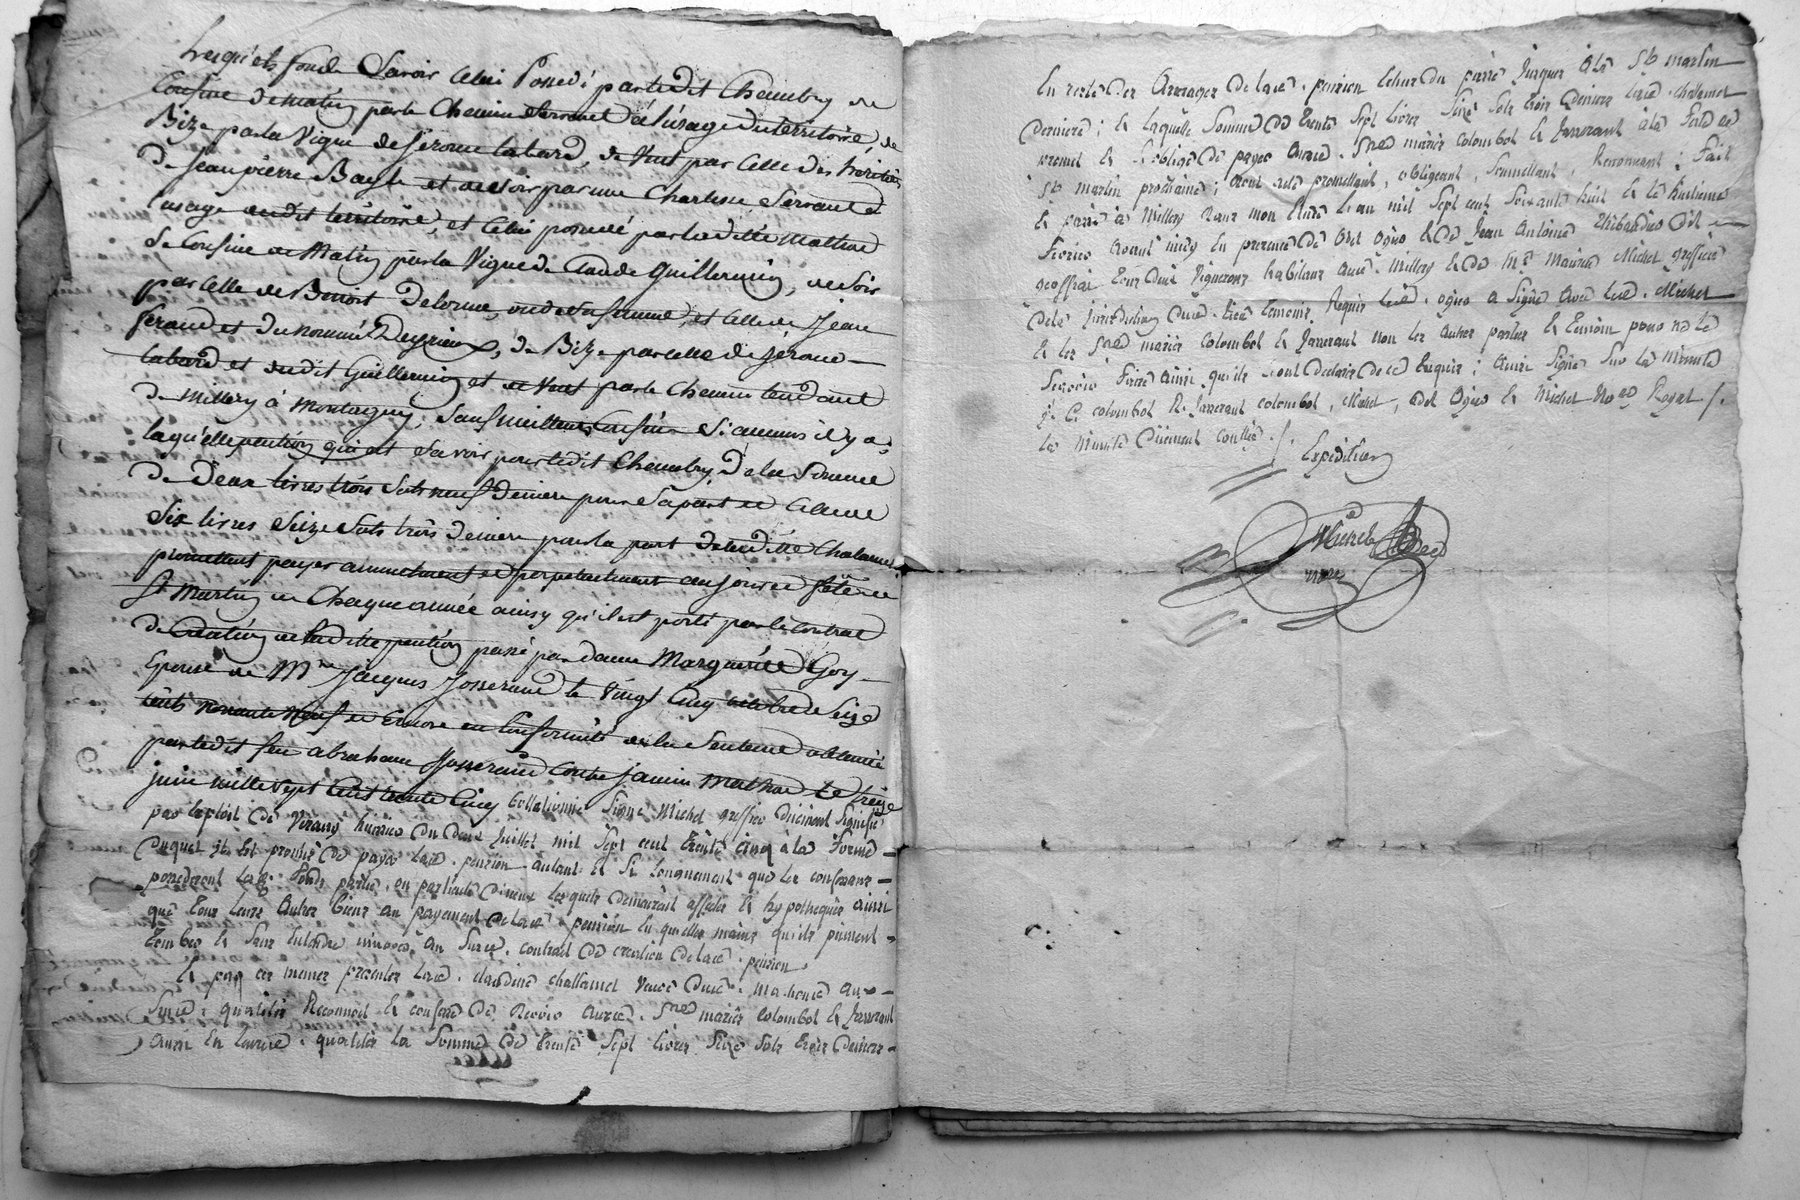 Lesquels fonds Savoir Celui Possedé par ledit Chambry se
Confine de matin par le Chemin Servant à l'usage du territoire, de
Bize par la Vigne de Jerome labard, de Vent par Celle des heritiers
De Jean pierre Bayle et de soir par une Charlière Servant a
l'usage dudit territoire, et Celui possedé par laditte Mathaud
Se Confine de Matin par la Vigne de Claude Guillermin, de Soir
par Celle de Benoist Delorme, ou de sa femme, et Celle de Jean
feraud et du nommé Deyrieux, de Bize par celle de Jerome
labard et dudit Guillermin et de Vent par le Chemin tendant
De Millery à Montagny, Sauf meilleurs Confins Si aucuns il y a,
laquelle pention qui est Savoir pour ledit Chambry De la Somme
De Deux livres trois Sols neuf Deniers pour Sa part et Celle de
Six livres Seize Sols trois Deniers pour la part de laditte Chalamel
promettent payer annuelement et perpetuelement au jour et fête de
St Martin de Chaque année ainsy qu'il est porté par le Contrat
De Création de laditte pention passé par dame Marguerite Goy
Epouse de Mre Jacques Josserand le Vingt Cinq octobre Seize
cents nonante Neuf et Encore en Conformité de la Sentence obtenüe
par ledit feu abraham Josserand Contre janin Mathaud le treize
juin mille Sept Cent trente Cinq Collationné Signé Michel greffier düement Signifié
par Exploit de huissier du deux Juillet mil Sept cent trente cinq à la forme
duquel il Est promis de payer lad. pension autant et Si longuement que les confinans
possederont lesd. fonds partie, ou particule d'iceux lesquels demeurent affectés et hypothequés ainsi
que tous leurs autres biens au payement de lad. pension En quelles mains qu'ils puissent
tomber et Sans Entendre innover, au Susd. contrat de création de lad. pension
Et par ces memes presentes lad. claudine challamel veuve dud. mathaud aux
Susd. qualités Reconnoit Et confesse de devoir auxd. Sred mariés colombet Et Jasserand
aussi En laditte qualités la Somme de trente Sept livres Seize Sols trois deniers
En reste des Arrerages de lad. pension Echus du passé Jusques à la St martin
derniere; Et laquelle Somme de trente Sept livres Seize Sols trois deniers lad. chalamel
promet Et S'oblige de payer auxd. Sred mariés colombet Et Jasserand à la Fete de
St martin prochaine; Dont acte promettant, obligeant, Soumettant, Renonçant; Fait
Et passé à Millery dans mon Etude L'an mil Sept cent Soixante huit Et le huitieme
Fevrier avant midy En presence de Et de Jean Antoine Thibaudier dit
geoffrai tous deux Vignerons habitans aud. Millery Et de Mre Maurice Michel greffier
de la Jurisdiction dud. lieu temoins Requis led. ogier a Signé avec led. Michel
Et les Sred mariés colombet Et Jasserand non les autres parties Et temoin pour ne le
Scavoir Faire ainsi qu'ils ont declaré de ce Enquis; ainsi Signé Sur la minutte
colombet Jasserand colombet, Michel, Et Michel Nore Royal
la minute düement conllée
Expedition
Michel
nore